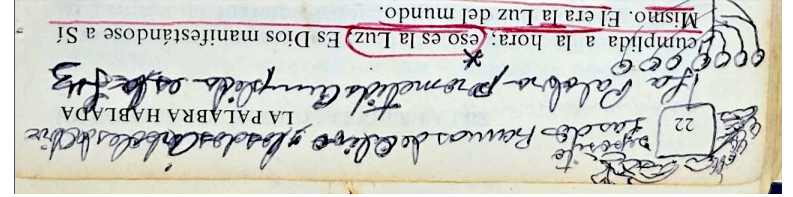 Ramos de Olivo, los dos Arboles de
22 LA PALABRA HABLADA
La Palabra prometida Cumplida es la Luz
cumplida a la hora; eso es la Luz. Es Dios manifestándose a Sí
Mismo. El era la Luz del mundo.